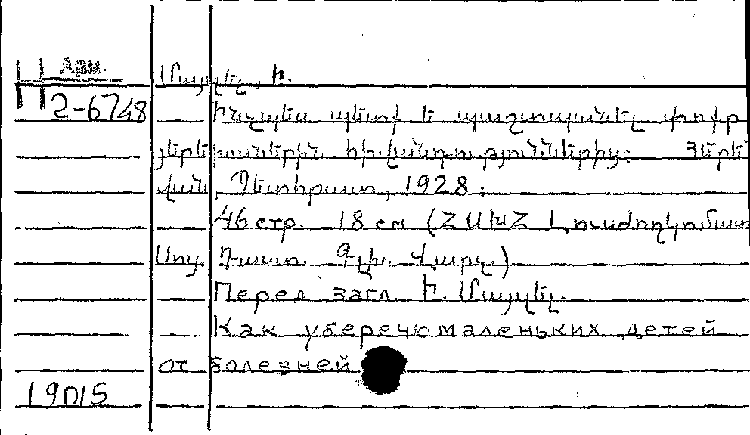 Арм.
П2-6748
Մայզել, Ի.
Ինչպես պետք է պաշտպանել փոքր
յերեխաներին հիվանդություններից: Յերե
վան, Պետհրատ, 1928:
46 стр. 18 см (ՀՍԽՀ Լուսժողկոմատ
Սոց. Դաստ. Գլխ. Վարչ.)
Перед загл. Ի. Մայզել.
Как уберечь маленьких детей
от болезней
19015